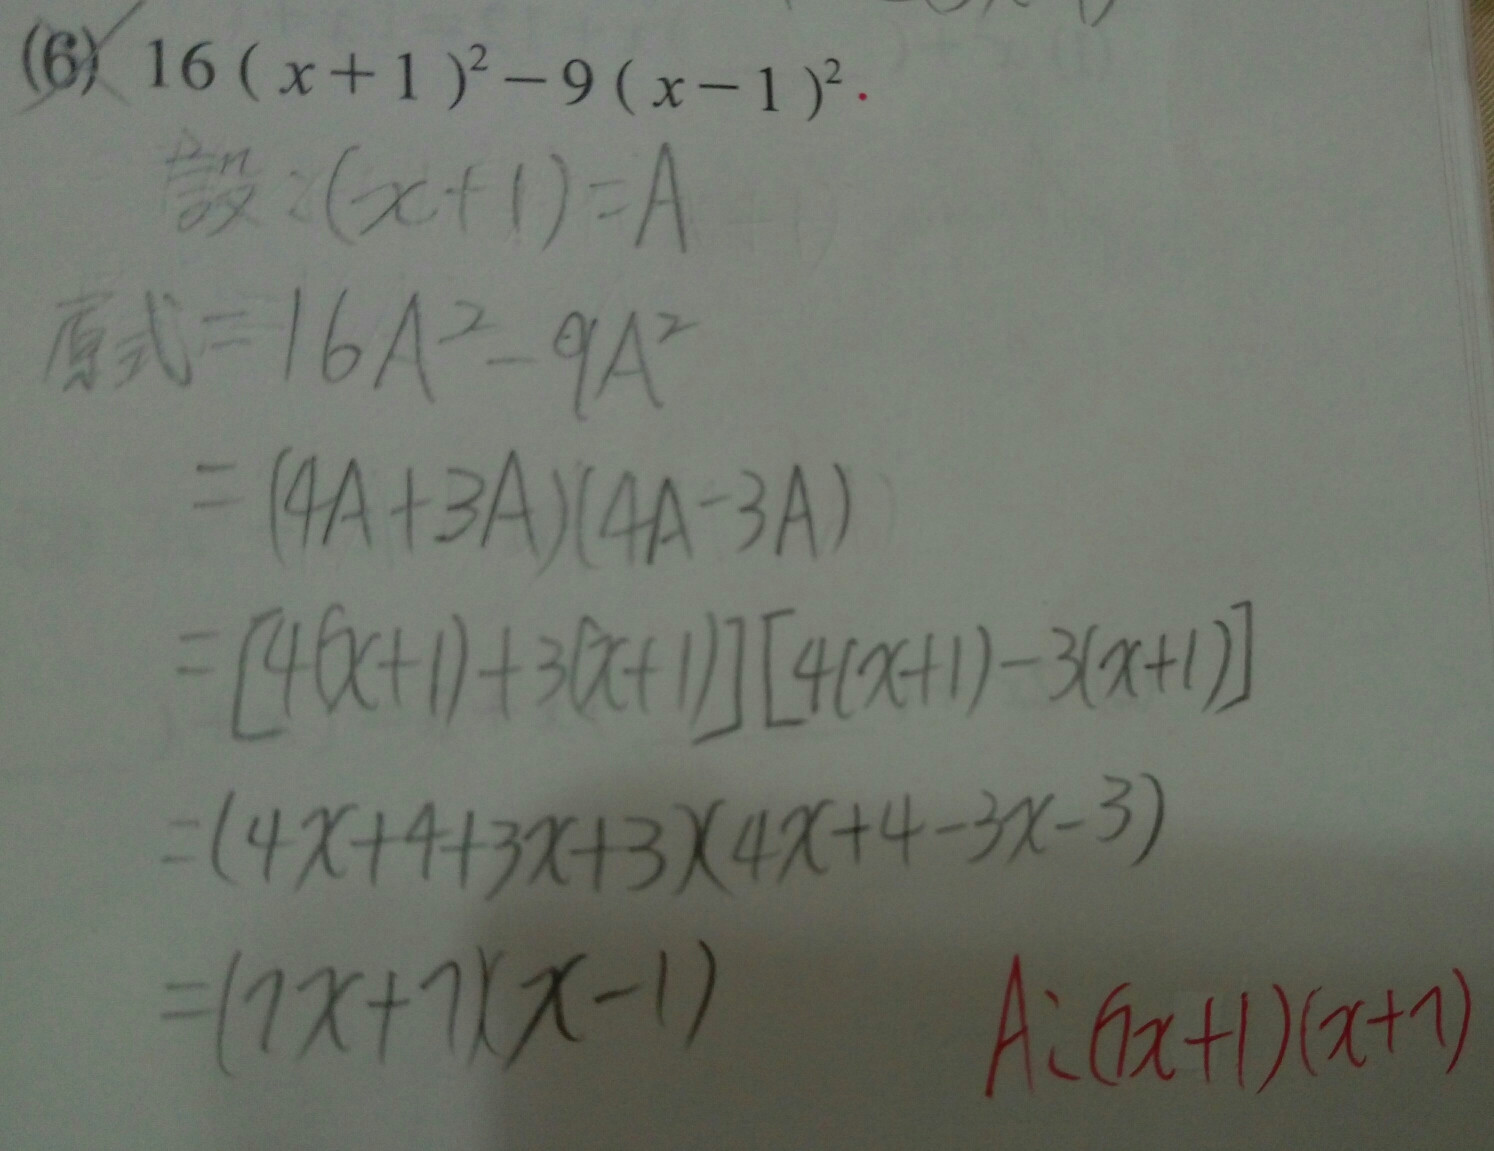 (6) 16(x+1)²-9(x-1)².
設:(x+1)=A
原式=16A²-9A²
=(4A+3A)(4A-3A)
=[4(x+1)+3(x+1)][4(x+1)-3(x+1)]
=(4x+4+3x+3)(4x+4-3x-3)
=(7x+7)(x-1)
A:(7x+1)(x+7)